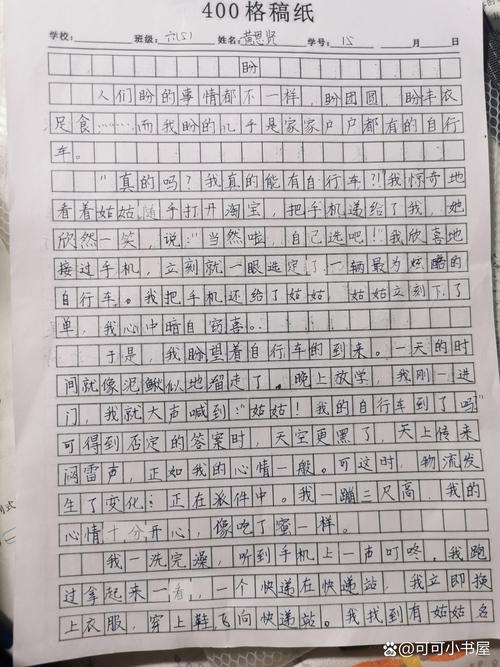 400格稿纸
学校： 班级：六(5) 姓名：黄思贤 学号：15 月 日
盼
人们盼的事情都不一样，盼团圆，盼丰衣
足食……而我盼的几乎是家家户户都有的自行
车。
"真的吗？我真的能有自行车?!我惊奇地
看着姑姑,随手打开淘宝，把手机递给了我，她
欣然一笑，说："当然啦，自己选吧!"我欣喜地
接过手机，立刻就一眼选定了一辆最为炫酷的
自行车。我把手机还给了姑姑，姑姑立刻下了
单，我心中暗自窃喜。
于是，我盼望着自行车的到来。一天的时
间就像泥鳅似地溜走了。晚上放学，我刚一进
门，我就大声喊到："姑姑！我的自行车到了吗"
可得到否定的答案时，天空更黑了，天上传来
闷雷声，正如我的心情一般。可这时，物流发
生了变化：正在派件中。我一蹦三尺高，我的
心情十分开心，像吃了蜜一样。
我一洗完澡，听到手机上一声叮咚，我跑
过拿起来一看，一个快递在快递站，我立即换
上衣服，穿上鞋飞向快递站。我找到有姑姑名
@可可小书屋